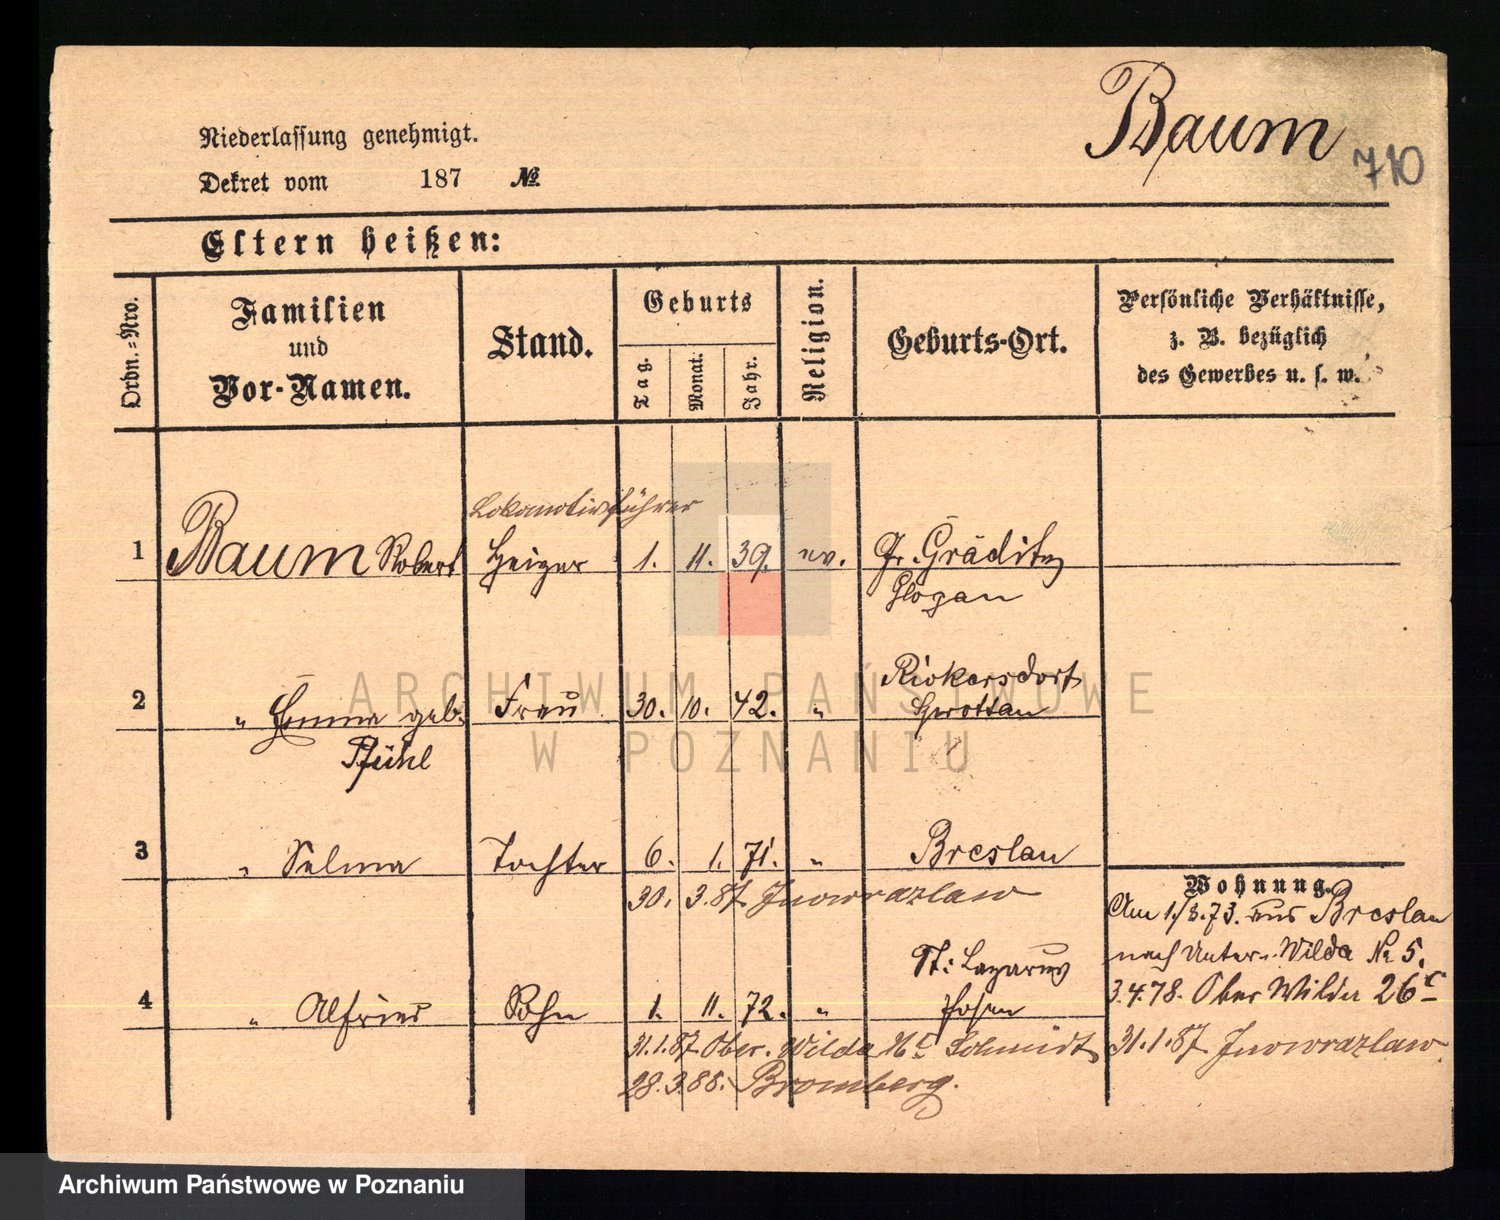 Baum
710
Niederlassung genehmigt.
Dekret vom 187 №
Eltern heißen:
Ordn.=Nro.
Familien
und
Vor-Namen.
Stand.
Geburts
Tag.
Monat.
Jahr.
Religion.
Geburts-Ort.
Persönliche Verhältnisse,
z. B. bezüglich
des Gewerbes u. s. w.
Lokomotivführer
1 Baum Robert Heizer 1. 11. 39. ev. Gr. Gräditz
Glogau
Rückersdorf
2 " Emma geb. Frau 30. 10. 42. " Sprottau
Pfühl
3 " Selma Tochter 6. 1. 71. " Breslau
30. 3. 87. Inowrazlaw
St: Lazarus
4 " Alfried Sohn 1. 11. 72. " Posen
31.1.87 Ober. Wilda Schmidt
28.3.88. Bromberg.
Wohnung.
Am 1./8.73. aus Breslau
nach Unter-Wilda № 5.
3.4.78. Ober Wilda 26c
31.1.87. Inowrazlaw
ARCHIWUM PAŃSTWOWE
W POZNANIU
Archiwum Państwowe w Poznaniu